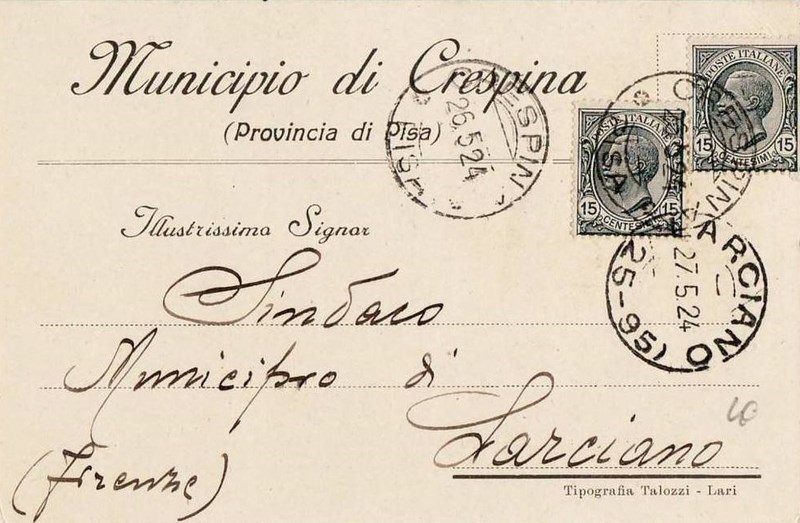 Municipio di Crespina
(Provincia di Pisa)
CRESPINA
26.5.24
PISA
POSTE ITALIANE
15 15
CENTESIMI
POSTE ITALIANE
15
CENTESIMI
CRESPINA
PISA
LARCIANO
27.5.24
(25-95)
Illustrissimo Signor
Sindaco
Municipio di
Larciano
(Firenze)
Tipografia Talozzi - Lari